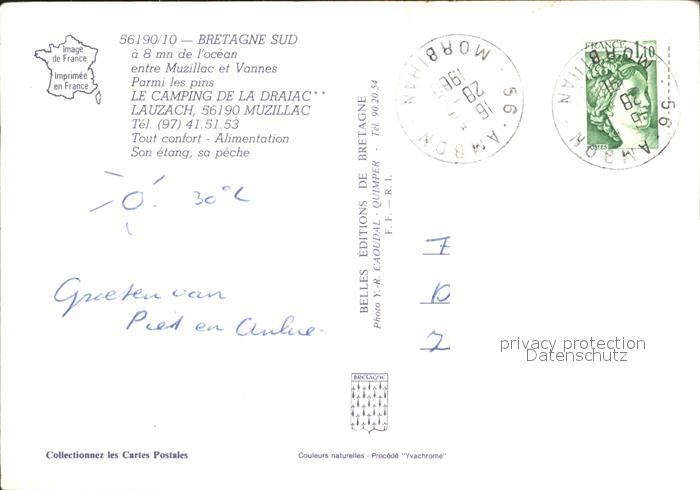 Image
de France
Imprimée
en France
56190/10 — BRETAGNE SUD
à 8 mn de l'océan
entre Muzillac et Vannes
Parmi les pins
LE CAMPING DE LA DRAIAC**
LAUZACH, 56190 MUZILLAC
Tél. (97) 41.51.53
Tout confort - Alimentation
Son étang, sa pêche
30°C
Groeten van
Piet en
BELLES ÉDITIONS DE BRETAGNE
Photo Y.-R. CAOUDAL - QUIMPER - Tél. 90.20.54
F. F. — R. I.
56 · AMBON · MORBIHAN
16
28
56 · AMBON · MORBIHAN
28
FRANCE
1,10
POSTES
privacy protection
Datenschutz
BRETAGNE
Collectionnez les Cartes Postales
Couleurs naturelles - Procédé "Yvachrome"